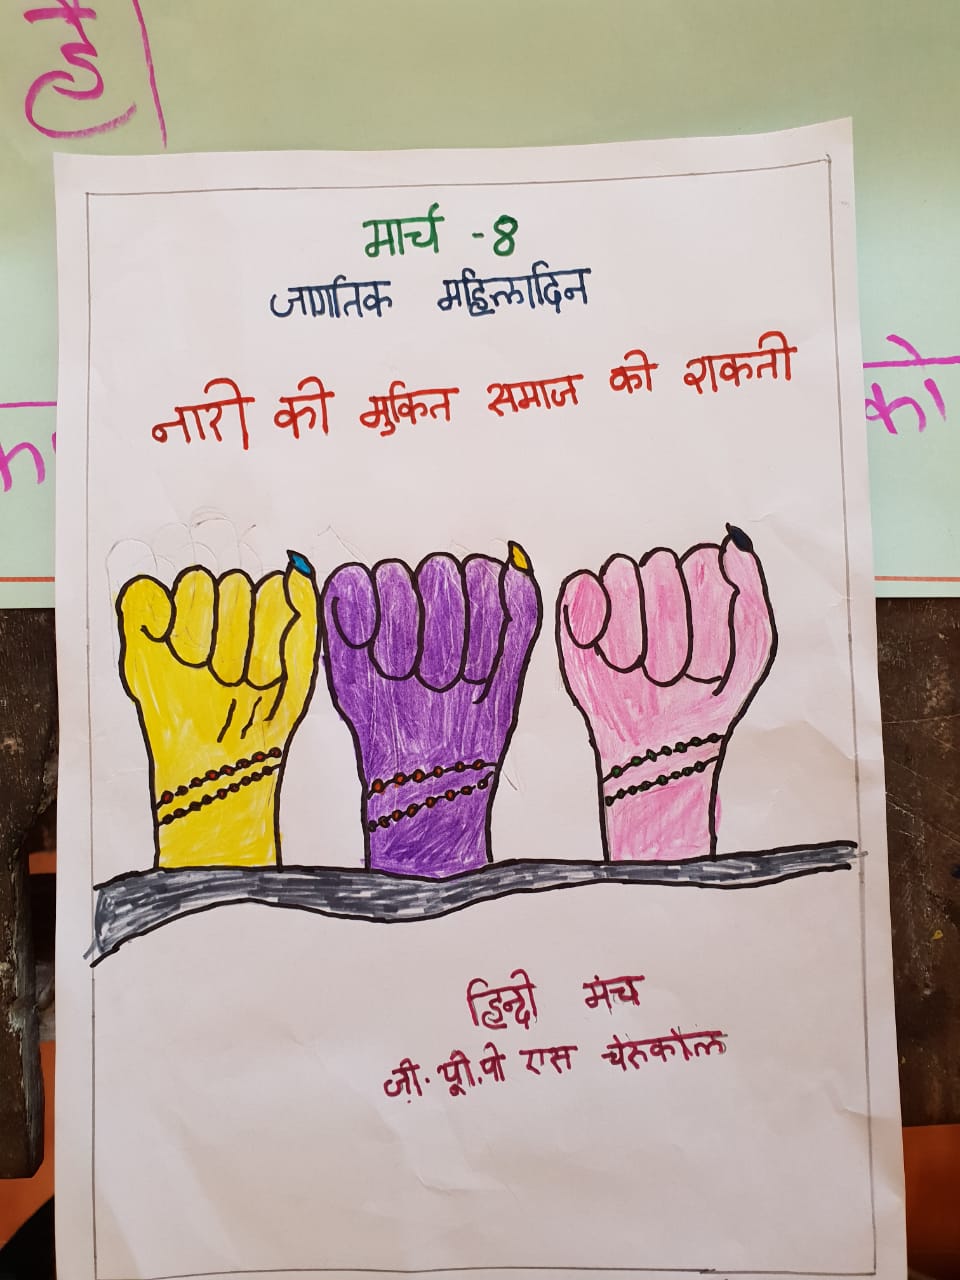 है
मार्च - 8
जागतिक महिलादिन
नारी की मुक्ति समाज की शक्ती
को
हिन्दी मंच
जी. यू.पी एस चेरुकोल